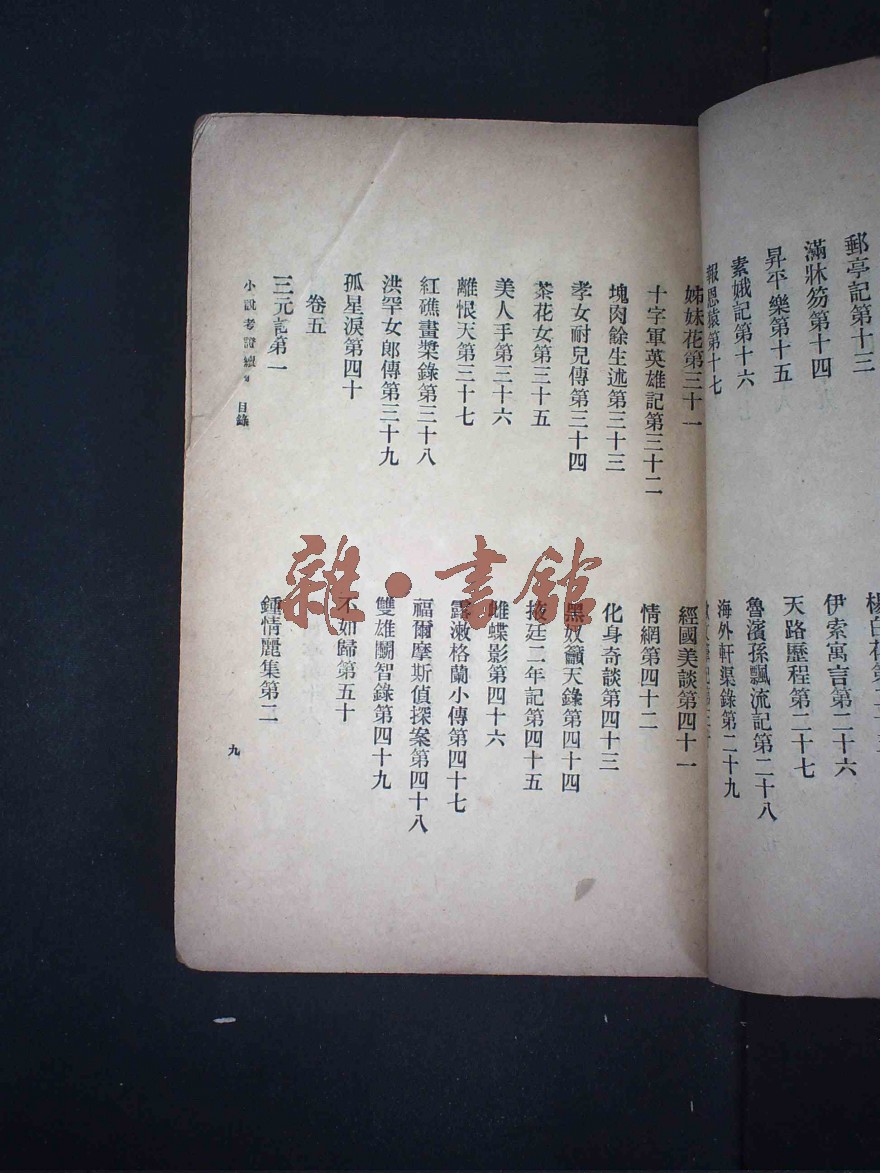 郵亭記第十三
滿牀笏第十四
昇平樂第十五
素娥記第十六
報恩猿第十七
伊索寓言第二十六
天路歷程第二十七
魯濱孫飄流記第二十八
海外軒渠錄第二十九
姊妹花第三十一
十字軍英雄記第三十二
塊肉餘生述第三十三
孝女耐兒傳第三十四
茶花女第三十五
美人手第三十六
離恨天第三十七
紅礁畫槳錄第三十八
洪罕女郎傳第三十九
孤星淚第四十
經國美談第四十一
情網第四十二
化身奇談第四十三
黑奴籲天錄第四十四
掖廷二年記第四十五
雌蝶影第四十六
露漱格蘭小傳第四十七
福爾摩斯偵探案第四十八
雙雄鬭智錄第四十九
不如歸第五十
卷五
三元記第一
鍾情麗集第二
小說考證續 目錄
九
雜·書館